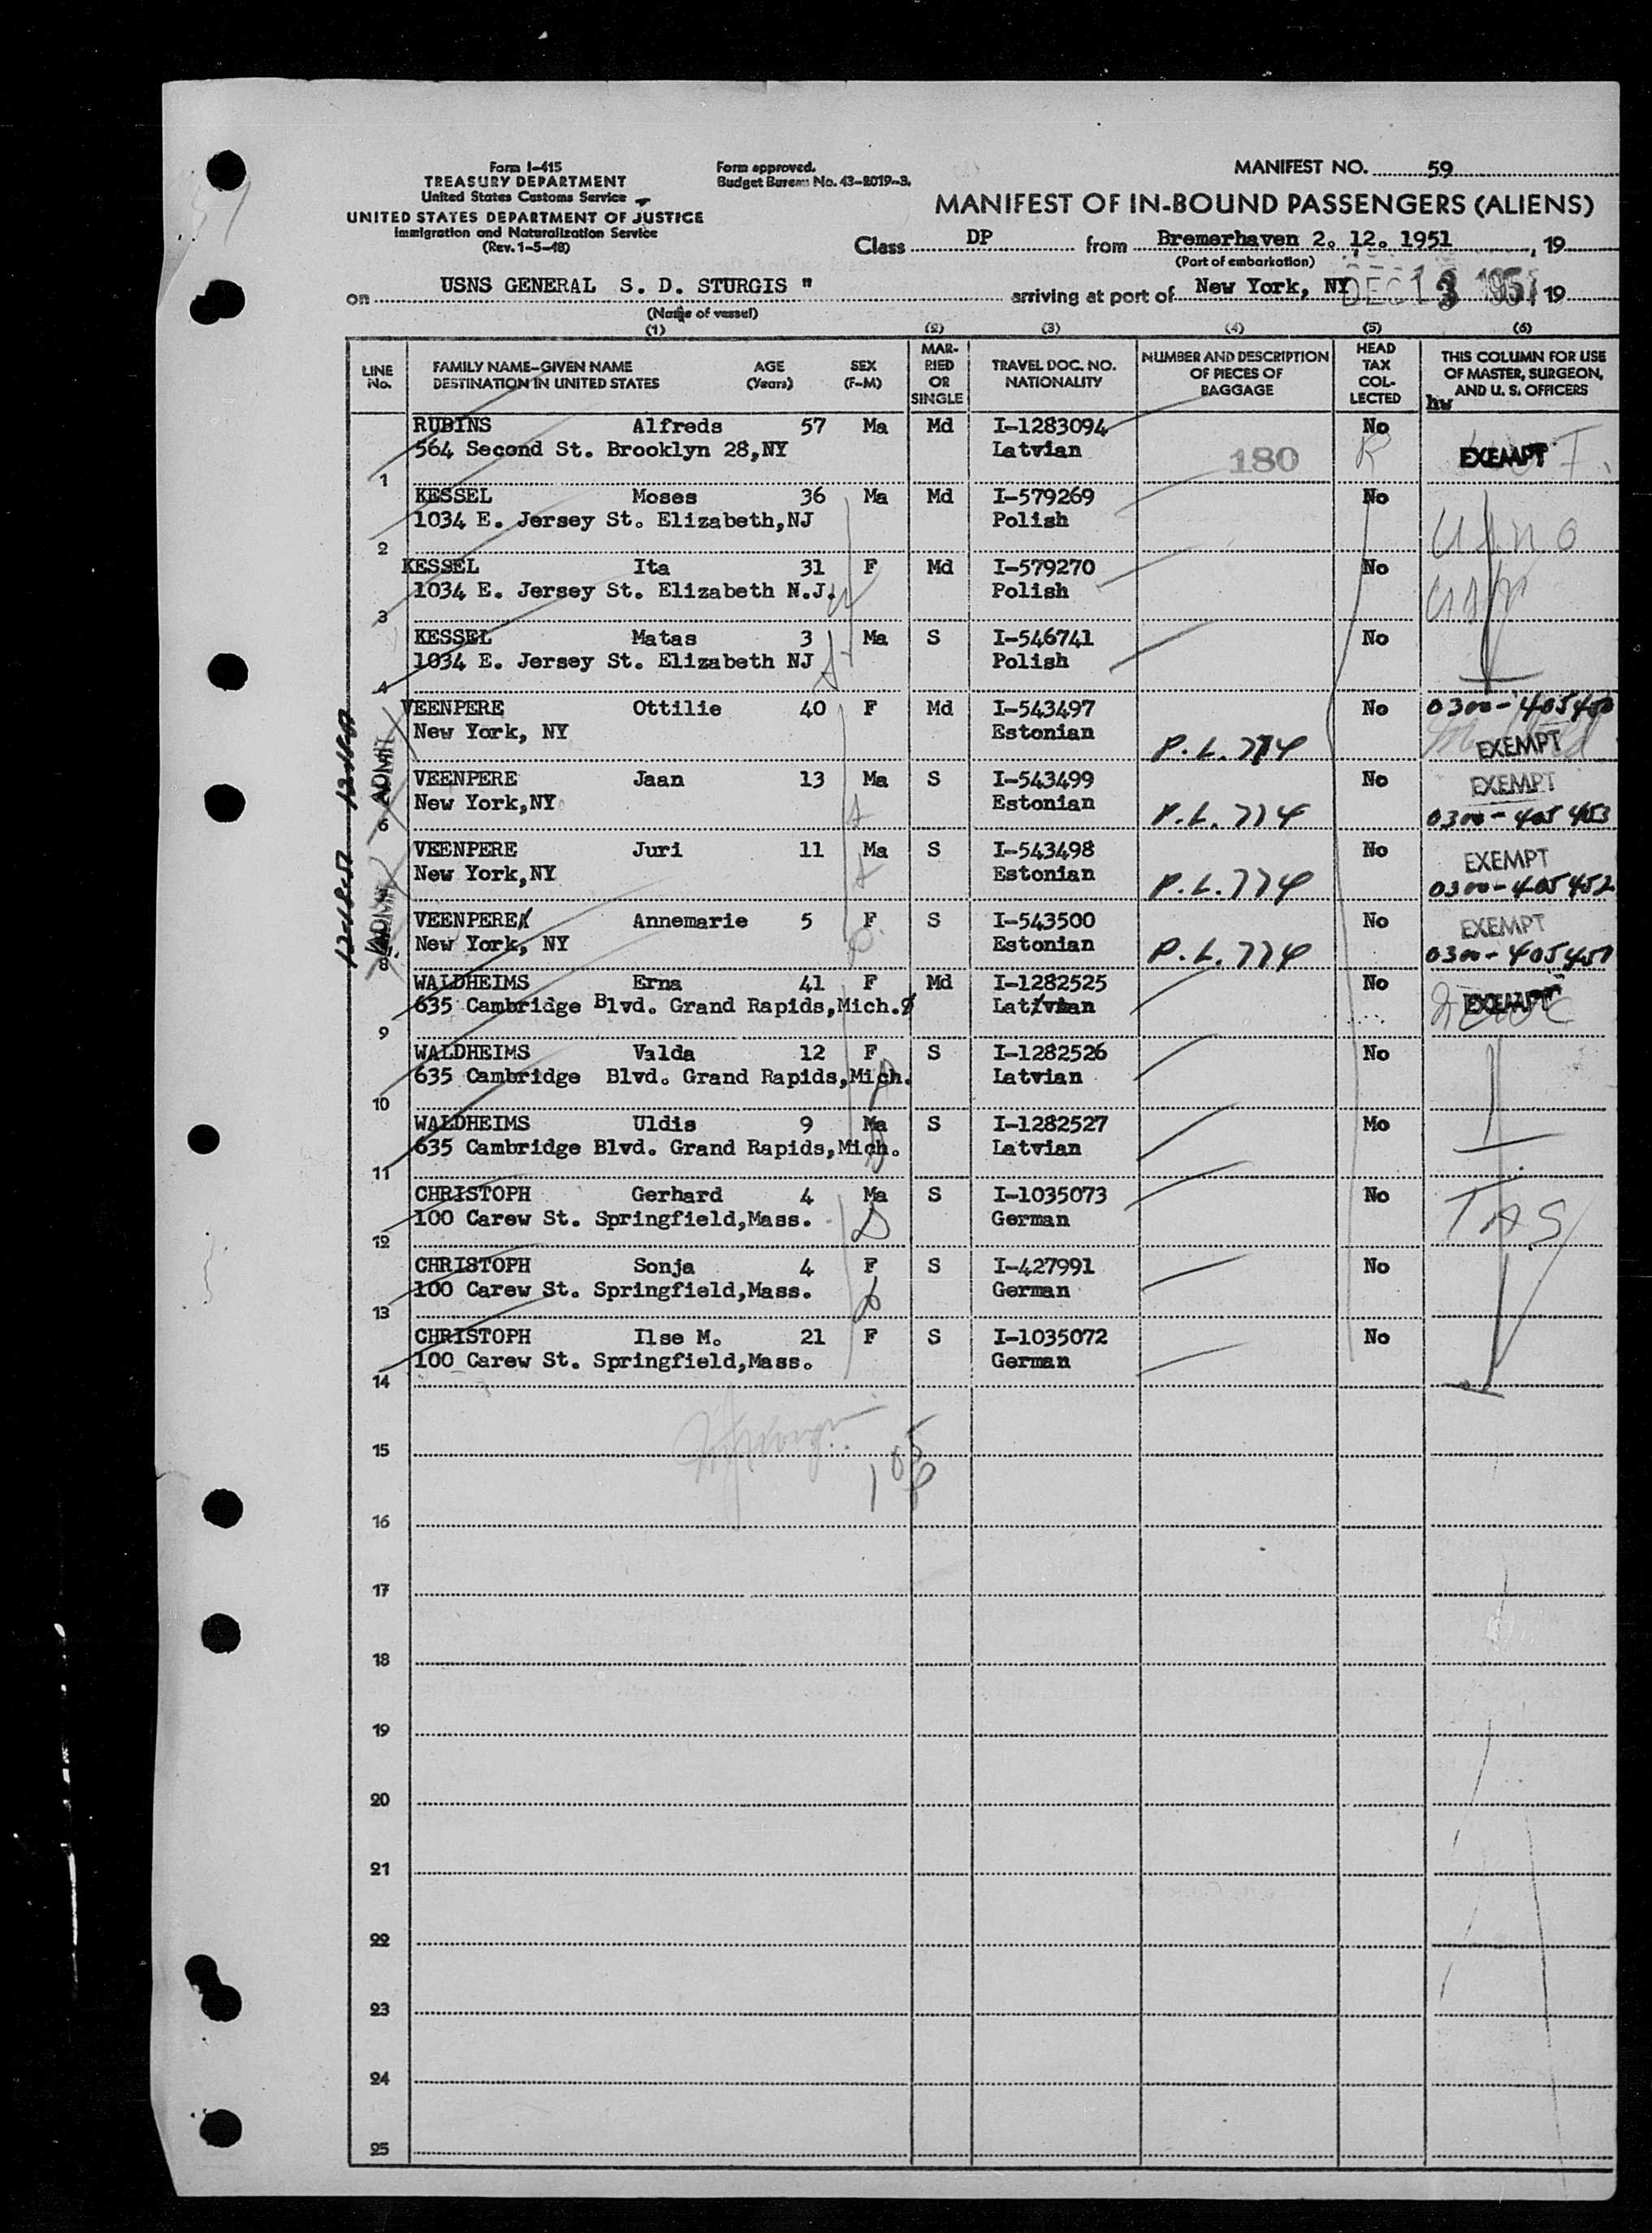 Form I-415
TREASURY DEPARTMENT
United States Customs Service
UNITED STATES DEPARTMENT OF JUSTICE
Immigration and Naturalization Service
(Rev. 1-5-48)
Form approved.
Budget Bureau No. 43-R019-3.
MANIFEST NO. 59
MANIFEST OF IN-BOUND PASSENGERS (ALIENS)
Class DP from Bremerhaven 2. 12. 1951, 19
(Port of embarkation)
on USNS GENERAL S. D. STURGIS " arriving at port of New York, NY DEC 13 1951 19
(Name of vessel)
(1) (2) (3) (4) (5) (6)
LINE No. FAMILY NAME-GIVEN NAME DESTINATION IN UNITED STATES AGE (Years) SEX (F-M) MARRIED OR SINGLE TRAVEL DOC. NO. NATIONALITY NUMBER AND DESCRIPTION OF PIECES OF BAGGAGE HEAD TAX COLLECTED THIS COLUMN FOR USE OF MASTER, SURGEON, AND U. S. OFFICERS
hw
RUBINS Alfreds 57 Ma Md I-1283094 No
564 Second St. Brooklyn 28,NY Latvian 180 R EXEMPT
1
KESSEL Moses 36 Ma Md I-579269 No
1034 E. Jersey St. Elizabeth,NJ Polish
2
KESSEL Ita 31 F Md I-579270 No
1034 E. Jersey St. Elizabeth N.J. Polish
3
KESSEL Matas 3 Ma S I-546741 No
1034 E. Jersey St. Elizabeth NJ Polish
4
VEENPERE Ottilie 40 F Md I-543497 No 0300-405450
New York, NY Estonian P.L.774 EXEMPT
ADMIT
VEENPERE Jaan 13 Ma S I-543499 No EXEMPT
New York,NY Estonian P.L.774 0300-405453
6
VEENPERE Juri 11 Ma S I-543498 No EXEMPT
New York,NY Estonian P.L.774 0300-405452
ADMIT
VEENPERE Annemarie 5 F S I-543500 No EXEMPT
New York, NY Estonian P.L.774 0300-405451
8
WALDHEIMS Erna 41 F Md I-1282525 No
635 Cambridge Blvd. Grand Rapids,Mich. Latvian EXEMPT
9
WALDHEIMS Valda 12 F S I-1282526 No
635 Cambridge Blvd. Grand Rapids,Mich. Latvian
10
WALDHEIMS Uldis 9 Ma S I-1282527 Mo
635 Cambridge Blvd. Grand Rapids,Mich. Latvian
11
CHRISTOPH Gerhard 4 Ma S I-1035073 No
100 Carew St. Springfield,Mass. German TAS
12
CHRISTOPH Sonja 4 F S I-427991 No
100 Carew St. Springfield,Mass. German
13
CHRISTOPH Ilse M. 21 F S I-1035072 No
100 Carew St. Springfield,Mass. German
14
15
16
17
18
19
20
21
22
23
24
25